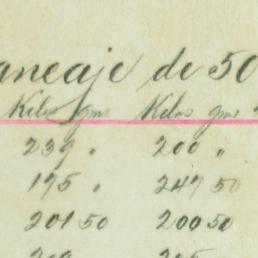 aneaje de 50
Kilos gms Kilos gms
239 " 200 "
175 " 247 50
201 50 200 50